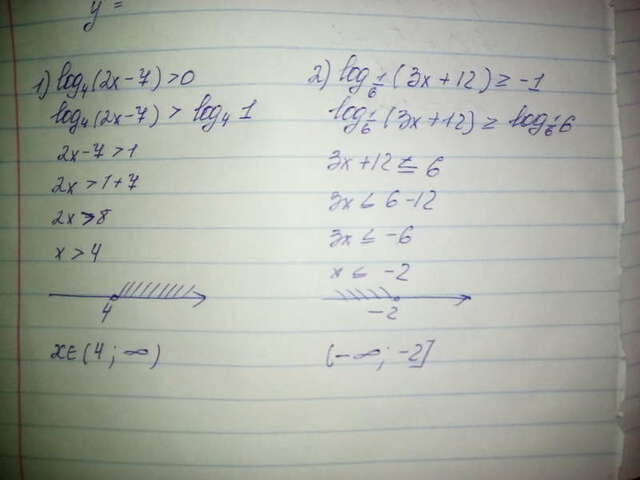 y =
1) log₄(2x-7)>0
log₄(2x-7) > log₄ 1
2x-7>1
2x>1+7
2x>8
x>4
4
x∈(4; ∞)
2) log_{1/6}(3x+12) ≥ -1
log_{1/6}(3x+12) ≥ log_{1/6} 6
3x+12 ≤ 6
3x ≤ 6-12
3x ≤ -6
x ≤ -2
-2
(-∞; -2]